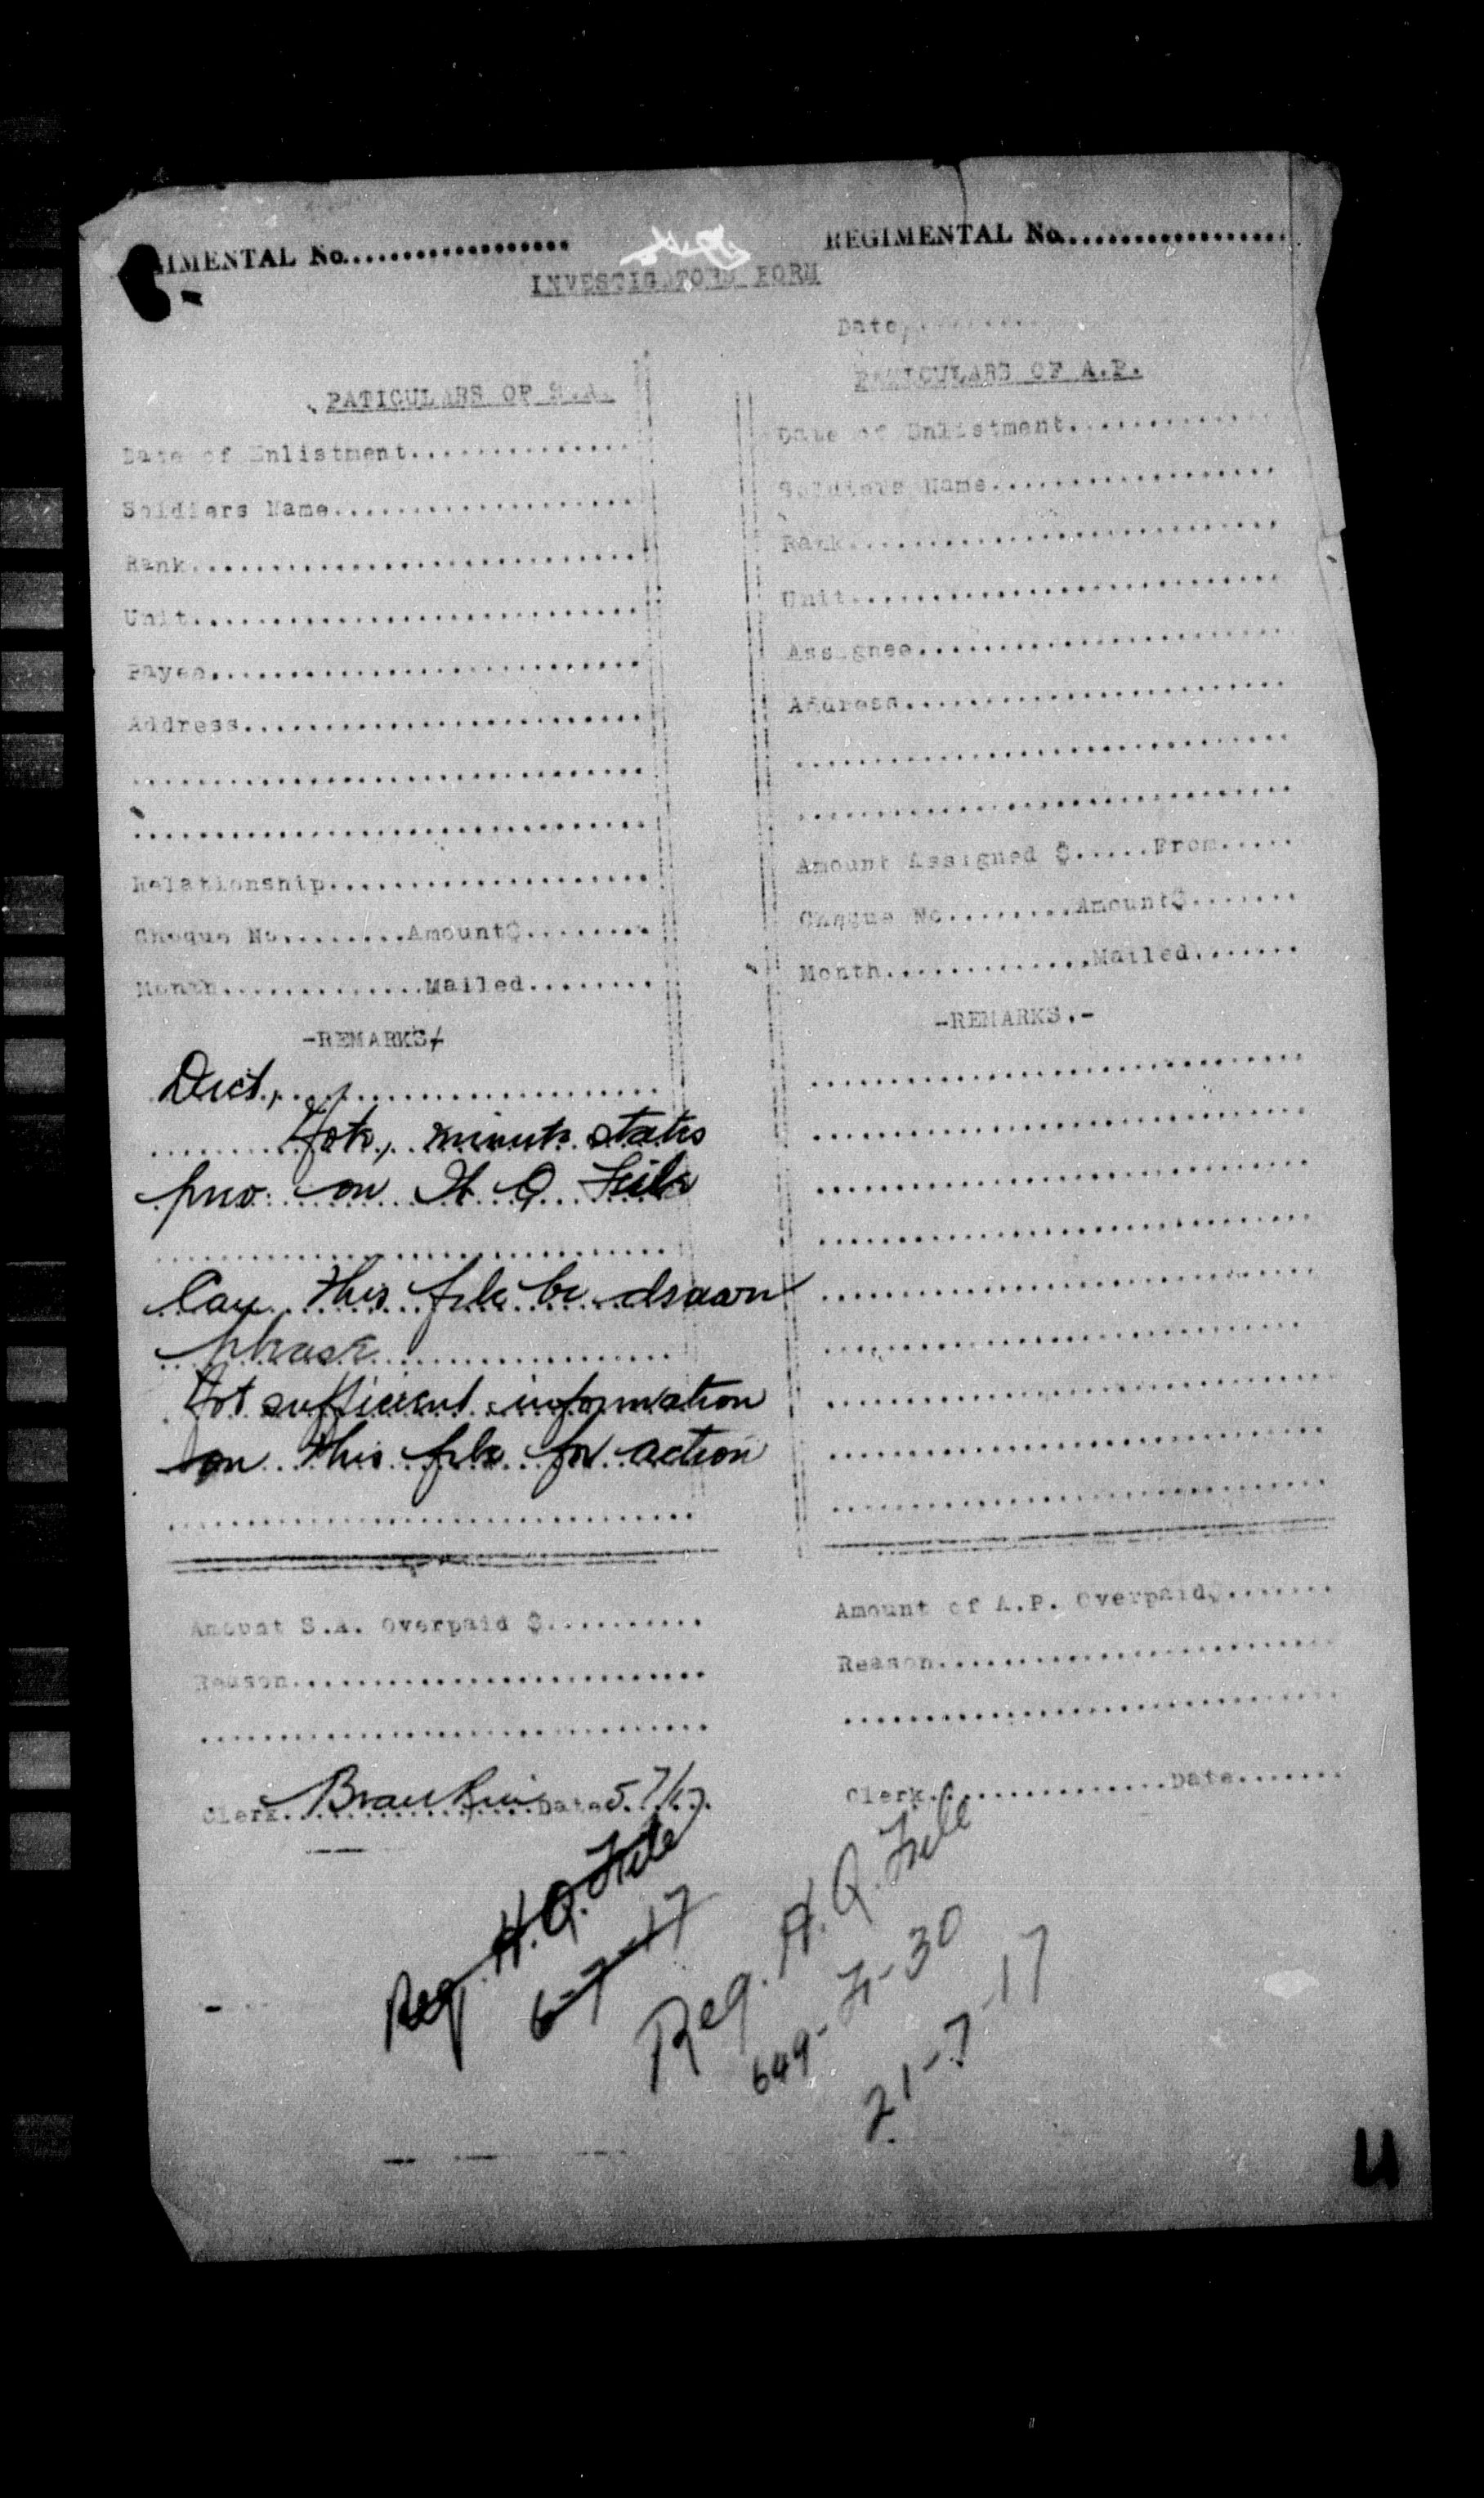 IMENTAL No..................
REGIMENTAL No..................
INVESTIGATORS FORM
Date,.........
PATICULARS OF S.A.
Date of Enlistment..............
Soldiers Name...................
Rank............................
Unit............................
Payee...........................
Address.........................
................................
................................
Relationship....................
Cheque No........Amount$........
Month.............Mailed........
-REMARKS/
Note, minute states
on H Q File
Can this file be drawn
please
Not sufficient information
on this file for action
................................
Amount S.A. Overpaid $..........
Reason..........................
................................
Clerk................Date 5/7/17.
PATICULARS OF A.P.
Date of Enlistment.............
Soldiers Name..................
Rank...........................
Unit...........................
Assignee.......................
Address........................
...............................
...............................
Amount Assigned $.....From.....
Cheque No........Amount$.......
Month.............Mailed.......
-REMARKS.-
...............................
...............................
...............................
...............................
...............................
...............................
...............................
...............................
...............................
Amount of A.P. Overpaid$.......
Reason.........................
...............................
Clerk...............Date.......
Reg. H.Q. File
6-7-17
Reg. H.Q. File
649-F-30
21-7-17